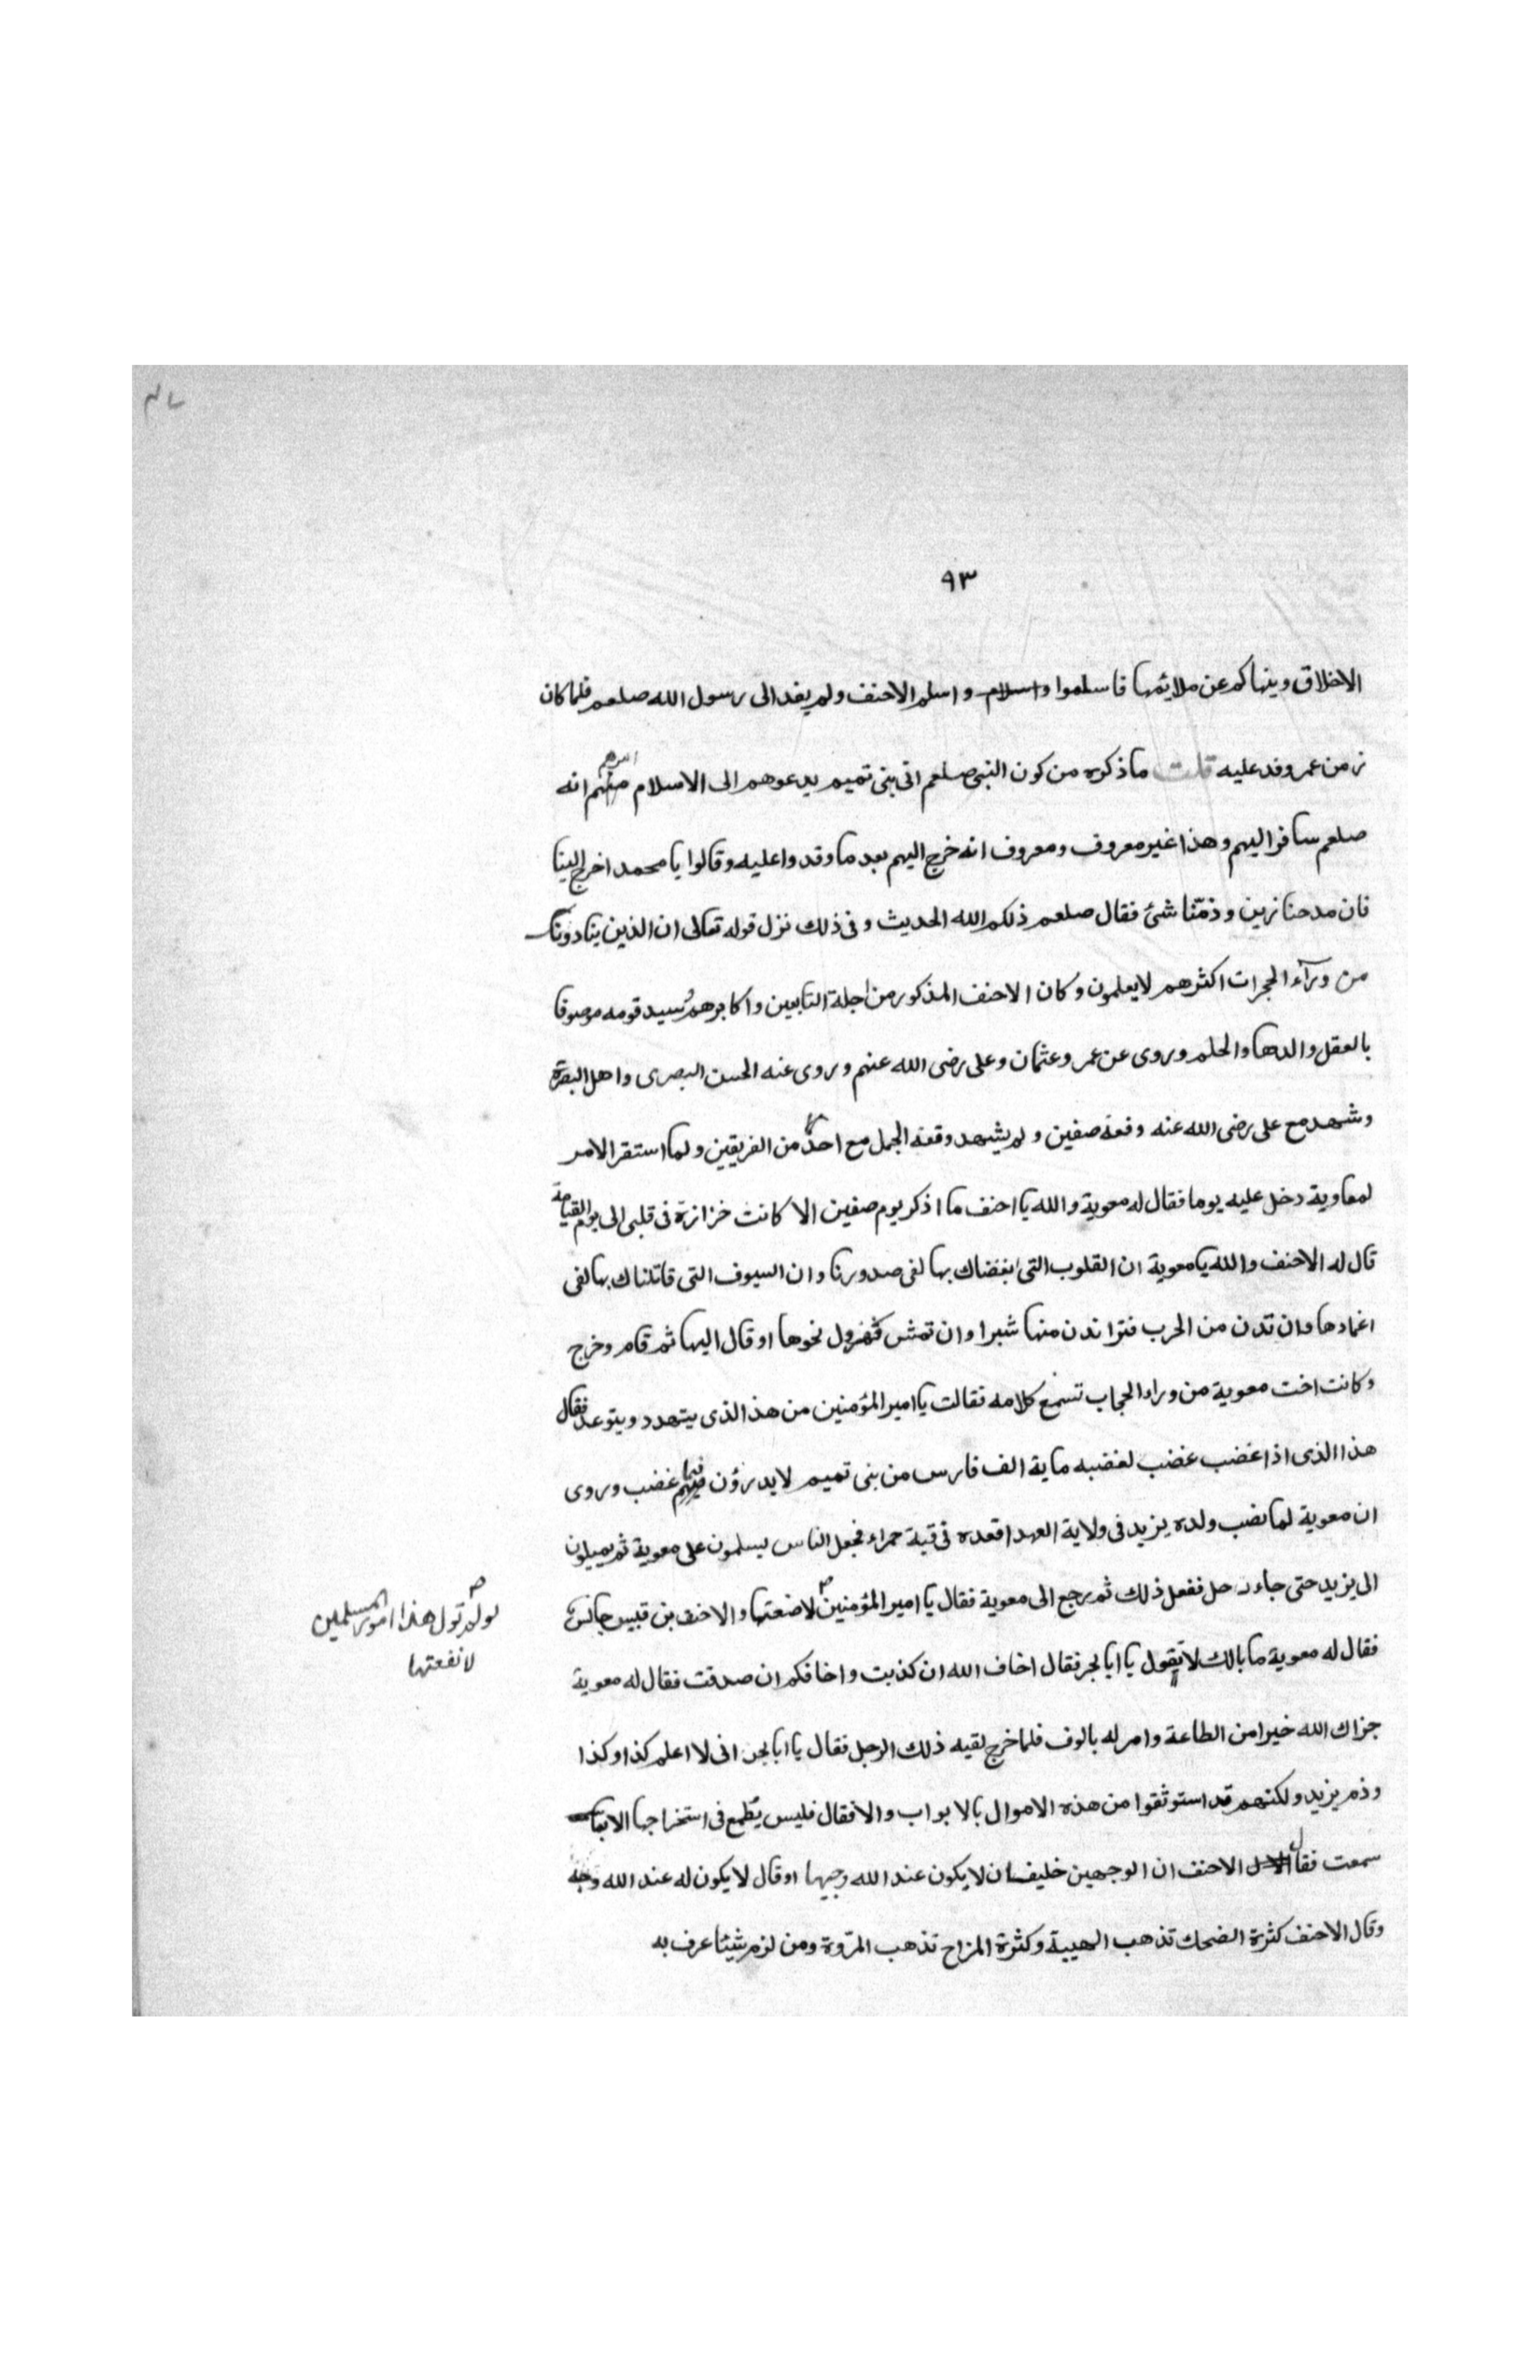 ٩٣
الاخلاق وينهاكم عن ملائمها فاسلموا واسلام واسلم الاحنف ولم يفد الى رسول الله صلعم فلما كان
زمن عمر وفد عليه قلت ما ذكره من كون النبى صلعم اتى بنى تميم يدعوهم الى الاسلام انه
صلعم سافر اليهم وهذا غير معروف ومعروف انه خرج اليهم بعد ما وفدوا عليه وقالوا يا محمد اخرج الينا
فان مدحنا زين وذمّنا شئ فقال صلعم ذلكم الله الحديث وفى ذلك نزل قوله تعالى ان الذين ينادونك
من ورآء الحجرات اكثرهم لا يعلمون وكان الاحنف المذكور من اجلة التابعين واكابرهم سيد قومه موصوفا
بالعقل والدها والحلم وروى عن عمر وعثمان وعلى رضى الله عنهم وروى عنه الحسن البصرى واهل البصرة
وشهد مع على رضى الله عنه وقعة صفين ولم يشهد وقعة الجمل مع احد من الفريقين ولما استقر الامر
لمعاوية دخل عليه يوما فقال له معوية والله يا احنف ما اذكر يوم صفين الا كانت خزازة فى قلبى الى يوم القيامة
قال له الاحنف والله يا معوية ان القلوب التى ابغضناك بها لفى صدورنا وان السيوف التى قاتلناك بها لفى
اغمادها وان تدن من الحرب فترا ندن منها شبرا وان تمش نهرول نحوها او قال اليها ثم قام وخرج
وكانت اخت معوية من وراء الحجاب تسمع كلامه فقالت يا امير المؤمنين من هذا الذى يتهدد ويتوعد فقال
هذا الذى اذا غضب غضب لغضبه ماية الف فارس من بنى تميم لا يدرؤن فيما غضب وروى
ان معوية لما نصب ولده يزيد فى ولاية العهد اقعده فى قبة حمراء فجعل الناس يسلمون على معوية ثم يميلون
الى يزيد حتى جاء رجل ففعل ذلك ثم رجع الى معوية فقال يا امير المؤمنين لاضعتها والاحنف بن قيس جالس
لو لم تول هذا امور المسلمين
لا نفعتها
فقال له معوية ما بالك لا تقول يا ابا بحر فقال اخاف الله ان كذبت واخافكم ان صدقت فقال له معوية
جزاك الله خيرا من الطاعة وامر له بالوف فلما خرج لقيه ذلك الرجل فقال يا ابا بحر انى لا اعلم كذا وكذا
وذم يزيد ولكنهم قد استوثقوا من هذه الاموال بالابواب والاقفال فليس يطمع فى استخراجها الا بما
سمعت فقال الاحنف ان الوجهين خليقان لا يكون عند الله وجيها او قال لا يكون له عند الله وجه
وقال الاحنف كثرة الضحك تذهب الهيبة وكثرة المزاح تذهب المروة ومن لزم شيئا عرف به